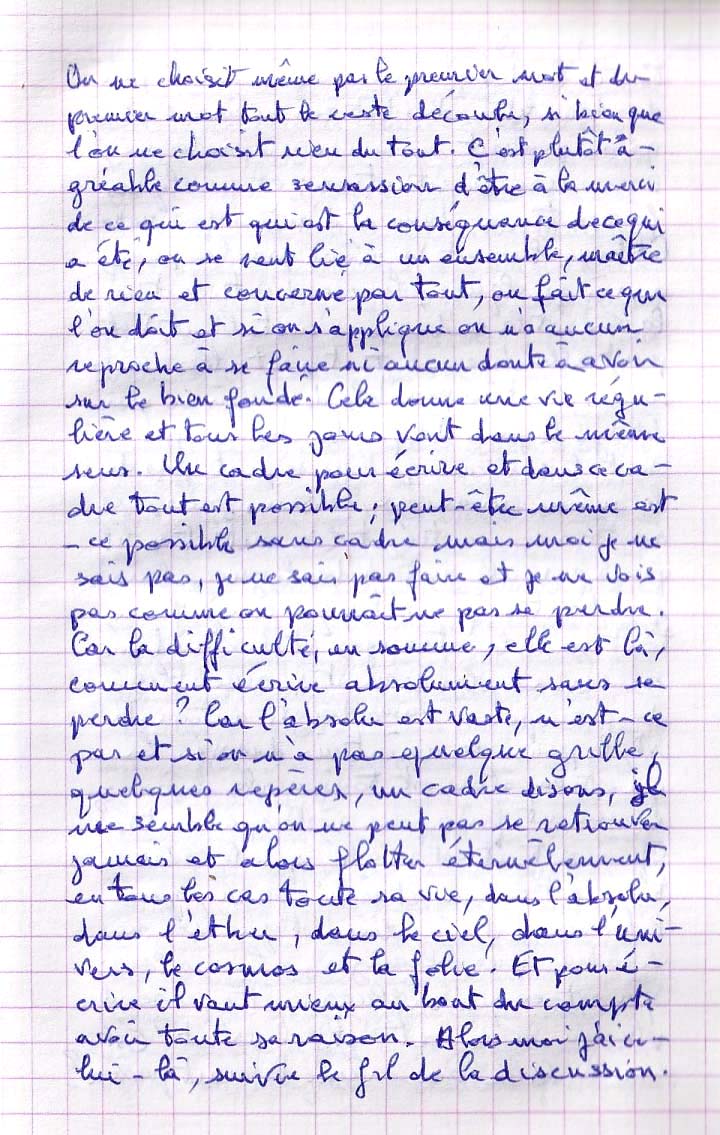 On ne choisit même pas le premier mot et du
premier mot tout le reste découle, si bien que
l'on ne choisit rien du tout. C'est plutôt a-
gréable comme sensassion d'être à la merci
de ce qui est qui est la conséquence de ce qui
a été, on se sent lié à un ensemble, maître
de rien et concerné par tout, on fait ce que
l'on doit et si on s'applique on n'a aucun
reproche à se faire ni aucun doute à avoir
sur le bien fondé. Cela donne une vie régu-
lière et tous les jours vont dans le même
sens. Un cadre pour écrire et dans ce ca-
dre tout est possible, peut-être même est
-ce possible sans cadre mais moi je ne
sais pas, je ne sais pas faire et je ne vois
pas comme on pourrait ne pas se perdre.
Car la difficulté, en somme, elle est là,
comment écrire absolument sans se
perdre ? Car l'absolu est vaste, n'est-ce
pas et si on n'a pas quelque grille,
quelques repères, un cadre disons, il
me semble qu'on ne peut pas se retrouver
jamais et alors flotter éternellement,
en tous les cas toute sa vie, dans l'absolu,
dans l'ether, dans le ciel, dans l'uni-
vers, le cosmos et la folie. Et pour é-
crire il vaut mieux au bout du compte
avoir toute sa raison. Alors moi j'ai ce-
lui-là, suivre le fil de la discussion.